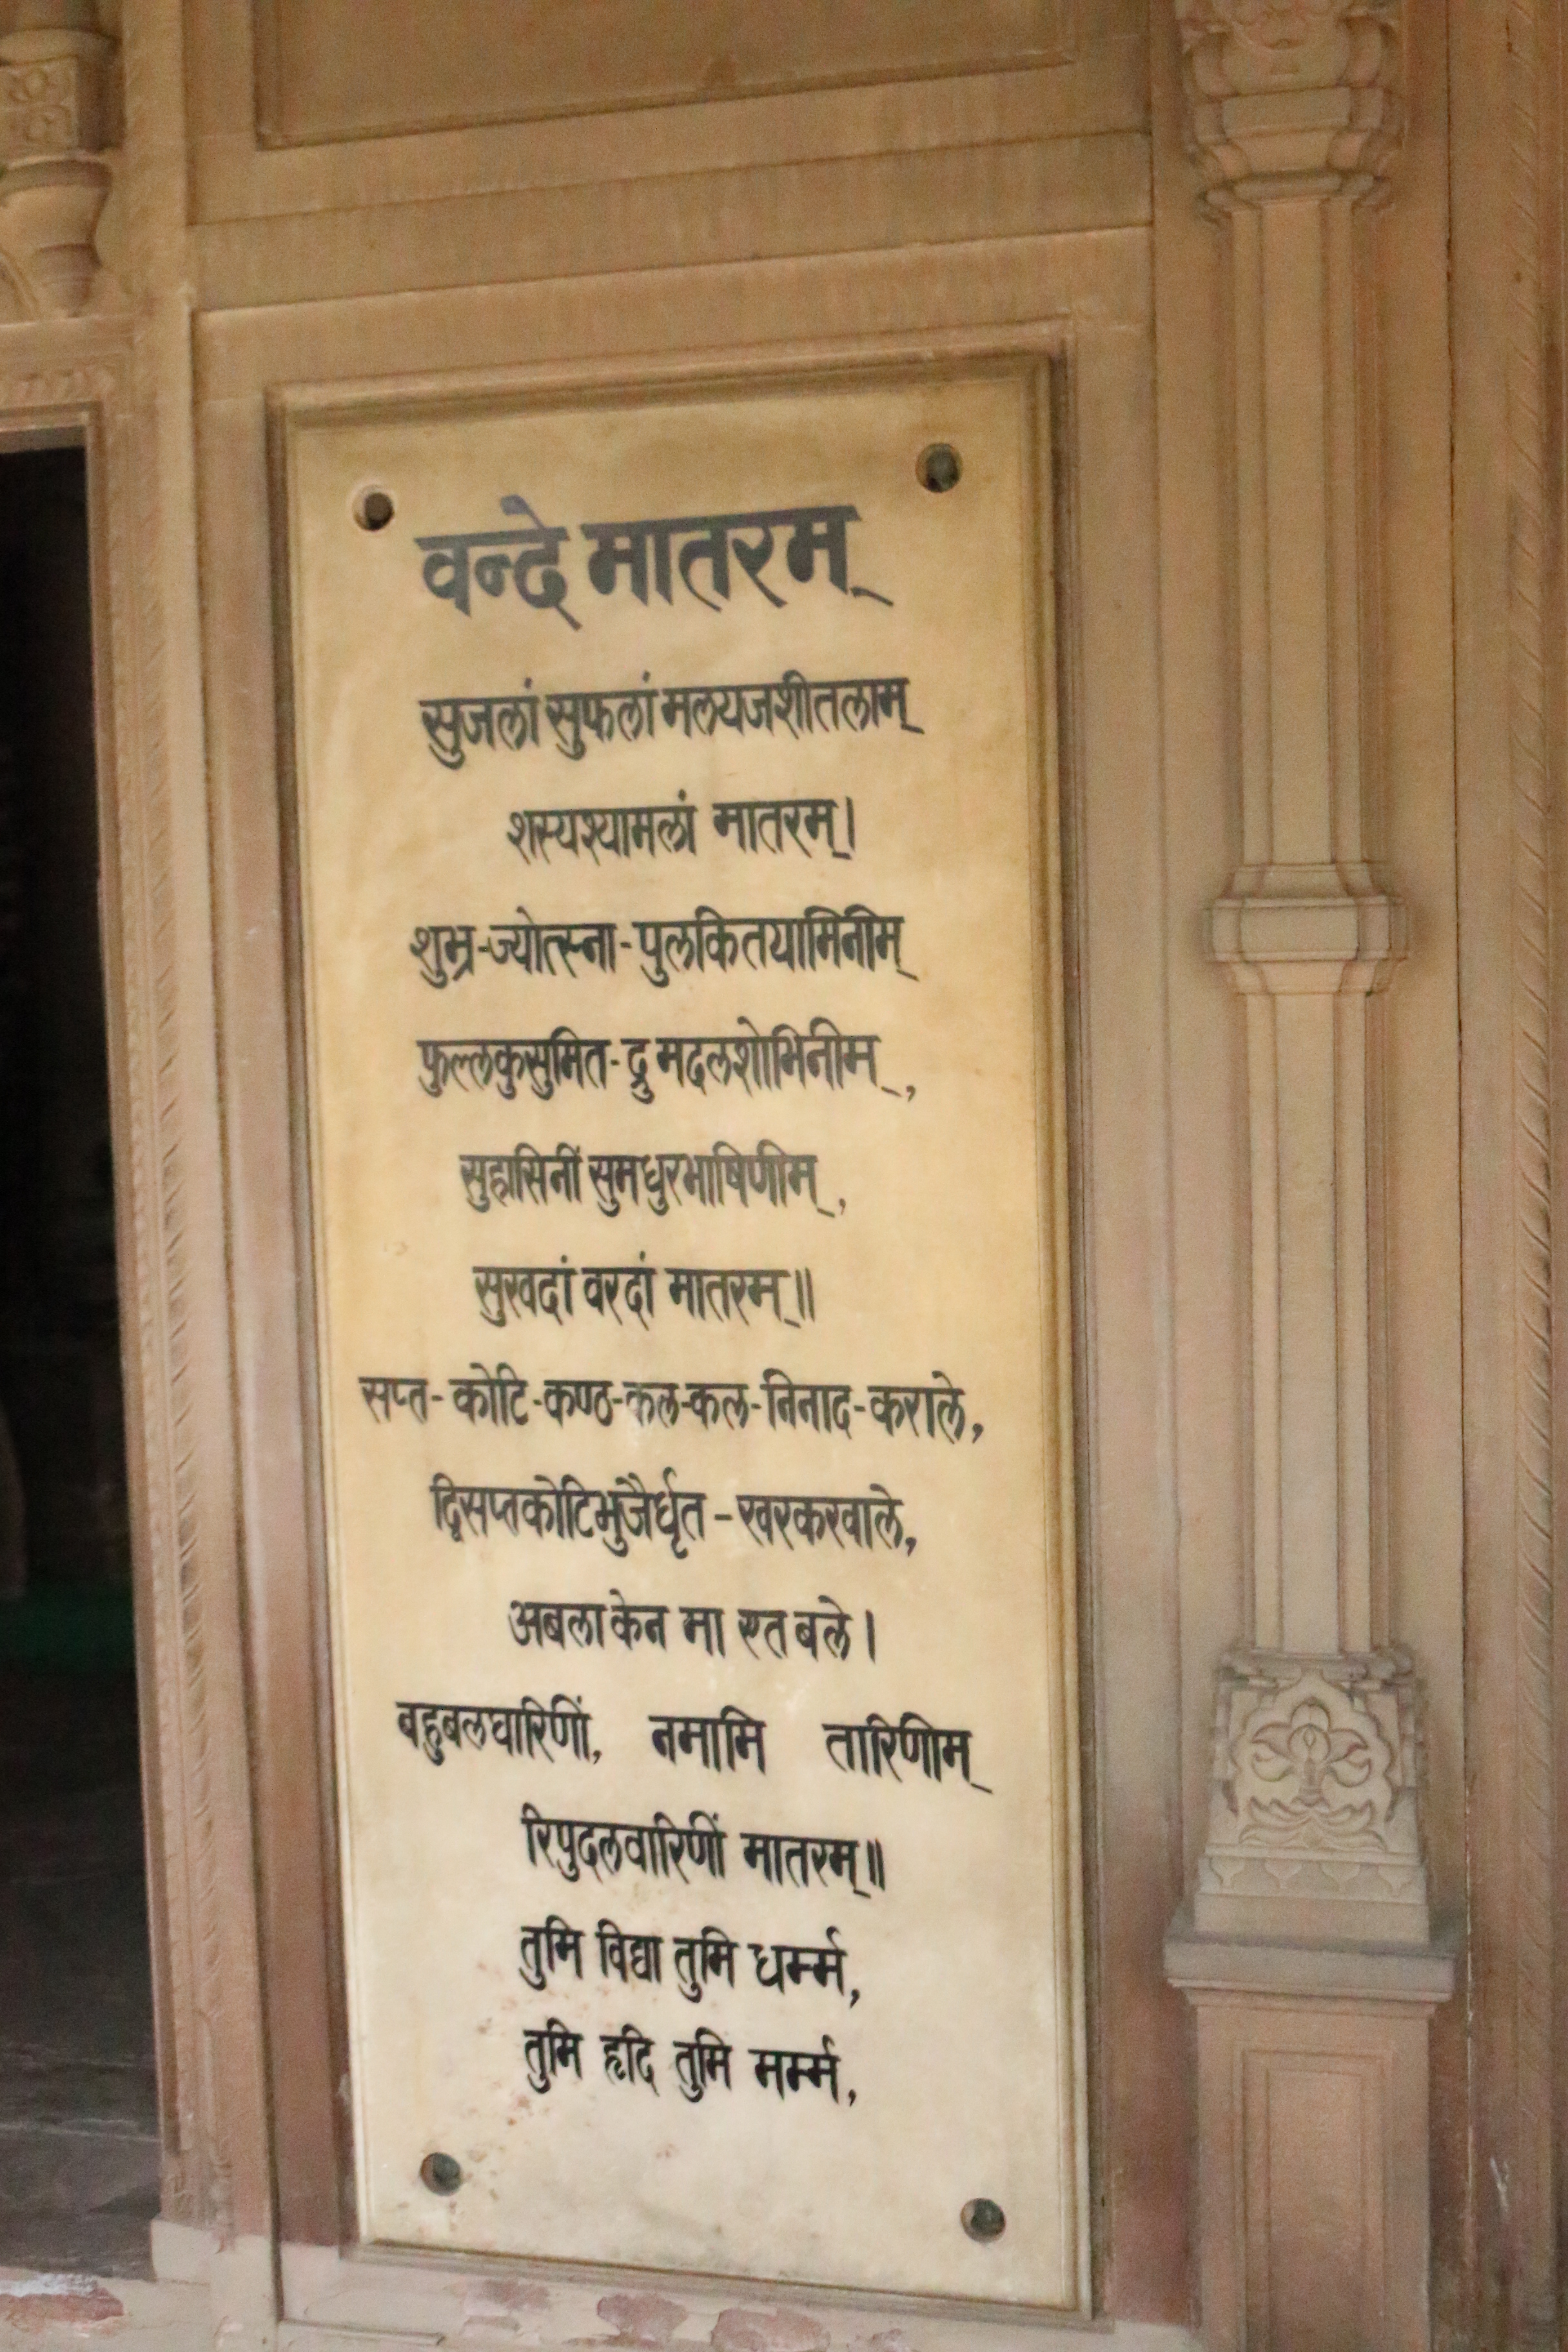 वन्दे मातरम्
सुजलां सुफलां मलयजशीतलाम्
शस्यश्यामलां मातरम्।
शुभ्र-ज्योत्स्ना-पुलकितयामिनीम्
फुल्लकुसुमित-द्रुमदलशोभिनीम्,
सुहासिनीं सुमधुरभाषिणीम्,
सुखदां वरदां मातरम्॥
सप्त-कोटि-कण्ठ-कल-कल-निनाद-कराले,
द्विसप्तकोटिभुजैर्धृत-खरकरवाले,
अबला केन मा एत बले।
बहुबलधारिणीं, नमामि तारिणीम्
रिपुदलवारिणीं मातरम्॥
तुमि विद्या तुमि धर्म्म,
तुमि हृदि तुमि मर्म्म,